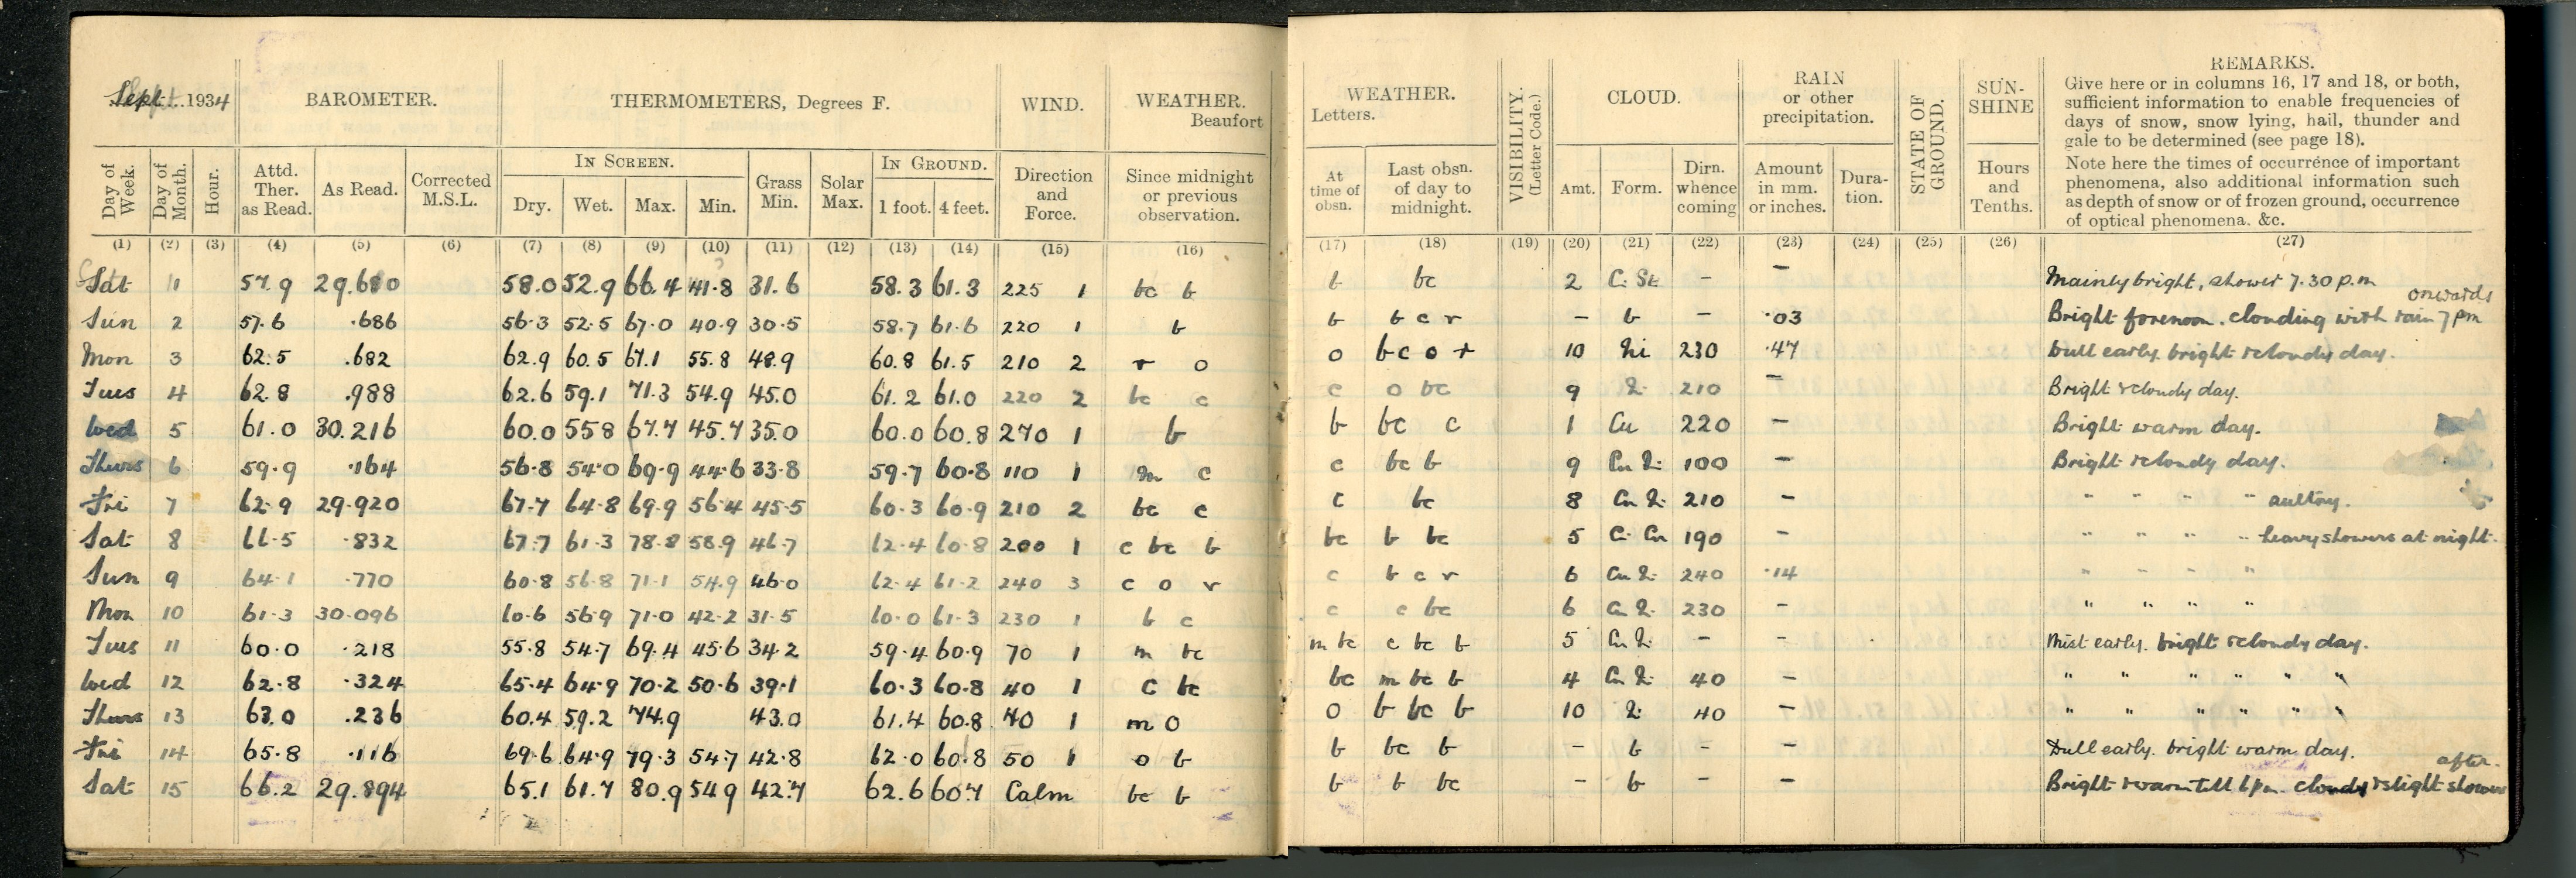 Sept. 1934
BAROMETER.
THERMOMETERS, Degrees F.
WIND.
WEATHER.
Beaufort
IN SCREEN.
IN GROUND.
Day of Week.
Day of Month.
Hour.
Attd. Ther. as Read.
As Read.
Corrected M.S.L.
Dry.
Wet.
Max.
Min.
Grass Min.
Solar Max.
1 foot.
4 feet.
Direction and Force.
Since midnight or previous observation.
(1) (2) (3) (4) (5) (6) (7) (8) (9) (10) (11) (12) (13) (14) (15) (16)
Sat 1 57.9 29.680 58.0 52.9 66.4 41.8 31.6 58.3 61.3 225 1 bc b
Sun 2 57.6 .686 56.3 52.5 67.0 40.9 30.5 58.7 61.6 220 1 b
Mon 3 62.5 .682 62.9 60.5 67.1 55.8 48.9 60.8 61.5 210 2 r o
Tues 4 62.8 .988 62.6 59.1 71.3 54.9 45.0 61.2 61.0 220 2 bc c
Wed 5 61.0 30.216 60.0 55 8 67.7 45.7 35.0 60.0 60.8 270 1 b
Thurs 6 59.9 .164 56.8 54.0 69.9 44.6 33.8 59.7 60.8 110 1 m c
Fri 7 62.9 29.920 67.7 64.8 69.9 56.4 45.5 60.3 60.9 210 2 bc c
Sat 8 66.5 .832 67.7 61.3 78.8 58.9 46.7 62.4 60.8 200 1 c bc b
Sun 9 64.1 .770 60.8 56.8 71.1 54.9 46.0 62.4 61.2 240 3 c o r
Mon 10 61.3 30.096 60.6 56.9 71.0 42.2 31.5 60.0 61.3 230 1 b c
Tues 11 60.0 .218 55.8 54.7 69.4 45.6 34.2 59.4 60.9 70 1 m bc
Wed 12 62.8 .324 65.4 64.9 70.2 50.6 39.1 60.3 60.8 40 1 c bc
Thurs 13 63.0 .236 60.4 59.2 74.9 43.0 61.4 60.8 40 1 m o
Fri 14 65.8 .116 69.6 64.9 79.3 54.7 42.8 62.0 60.8 50 1 o b
Sat 15 66.2 29.894 65.1 61.7 80.9 54.9 42.7 62.6 60.7 Calm bc b
WEATHER.
Letters.
VISIBILITY.
(Letter Code.)
CLOUD.
RAIN
or other
precipitation.
STATE OF GROUND.
SUN-
SHINE
REMARKS.
Give here or in columns 16, 17 and 18, or both,
sufficient information to enable frequencies of
days of snow, snow lying, hail, thunder and
gale to be determined (see page 18).
Note here the times of occurrence of important
phenomena, also additional information such
as depth of snow or of frozen ground, occurrence
of optical phenomena. &c.
At time of obsn.
Last obsn. of day to midnight.
Amt.
Form.
Dirn. whence coming
Amount in mm. or inches.
Dura-tion.
Hours and Tenths.
(17) (18) (19) (20) (21) (22) (23) (24) (25) (26) (27)
b bc 2 Ci St - - Mainly bright, shower 7.30 p.m
b b c r - b - .03 Bright forenoon. clouding with rain 7 pm onwards
o bc o r 10 230 .47 Dull early. bright & cloudy day.
c o bc 9 210 - Bright & cloudy day.
b bc c 1 Cu 220 - Bright warm day.
c bc b 9 100 - Bright & cloudy day.
c bc 8 210 - " " " " sultry.
bc b bc 5 Ci Cu 190 - " " " " heavy showers at night.
c b c r 6 240 .14 " " " "
c c bc 6 230 - " " " "
m bc c bc b 5 - - Mist early. bright & cloudy day.
bc m bc b 4 40 - " " " " " "
o b bc b 10 40 - " " " " " "
b bc b - b - - Dull early. bright warm day.
b b bc - b - - Bright & warm till 6 p.m. cloudy & slight shower after.